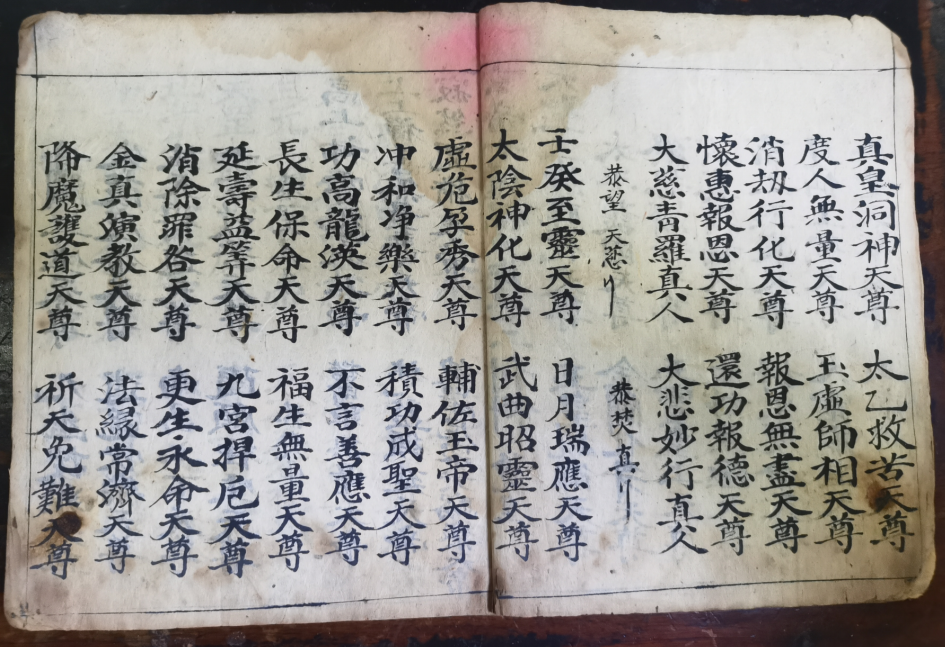 真皇洞神天尊 太乙救苦天尊
度人無量天尊 玉虛師相天尊
消劫行化天尊 報恩無盡天尊
懷惠報恩天尊 還功報德天尊
大慈青羅真人 大悲妙行真人
恭望 天慈 恭焚真
壬癸至靈天尊 日月瑞應天尊
太陰神化天尊 武曲昭靈天尊
虛危孕秀天尊 輔佐玉帝天尊
冲和净樂天尊 積功成聖天尊
功高龍漢天尊 不言善應天尊
長生保命天尊 福生無量天尊
延壽益筭天尊 九宮捍厄天尊
消除罪咎天尊 更生永命天尊
金真演教天尊 法緣常濟天尊
降魔護道天尊 祈天免難天尊